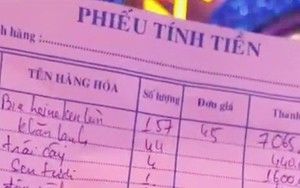 PHIẾU TÍNH TIỀN
h hàng :
TÊN HÀNG HÓA Số lượng Đơn giá Thanh
Bia heineken lùn 157 45 7065
khăn lạnh 44 440
trái cây 4 1600